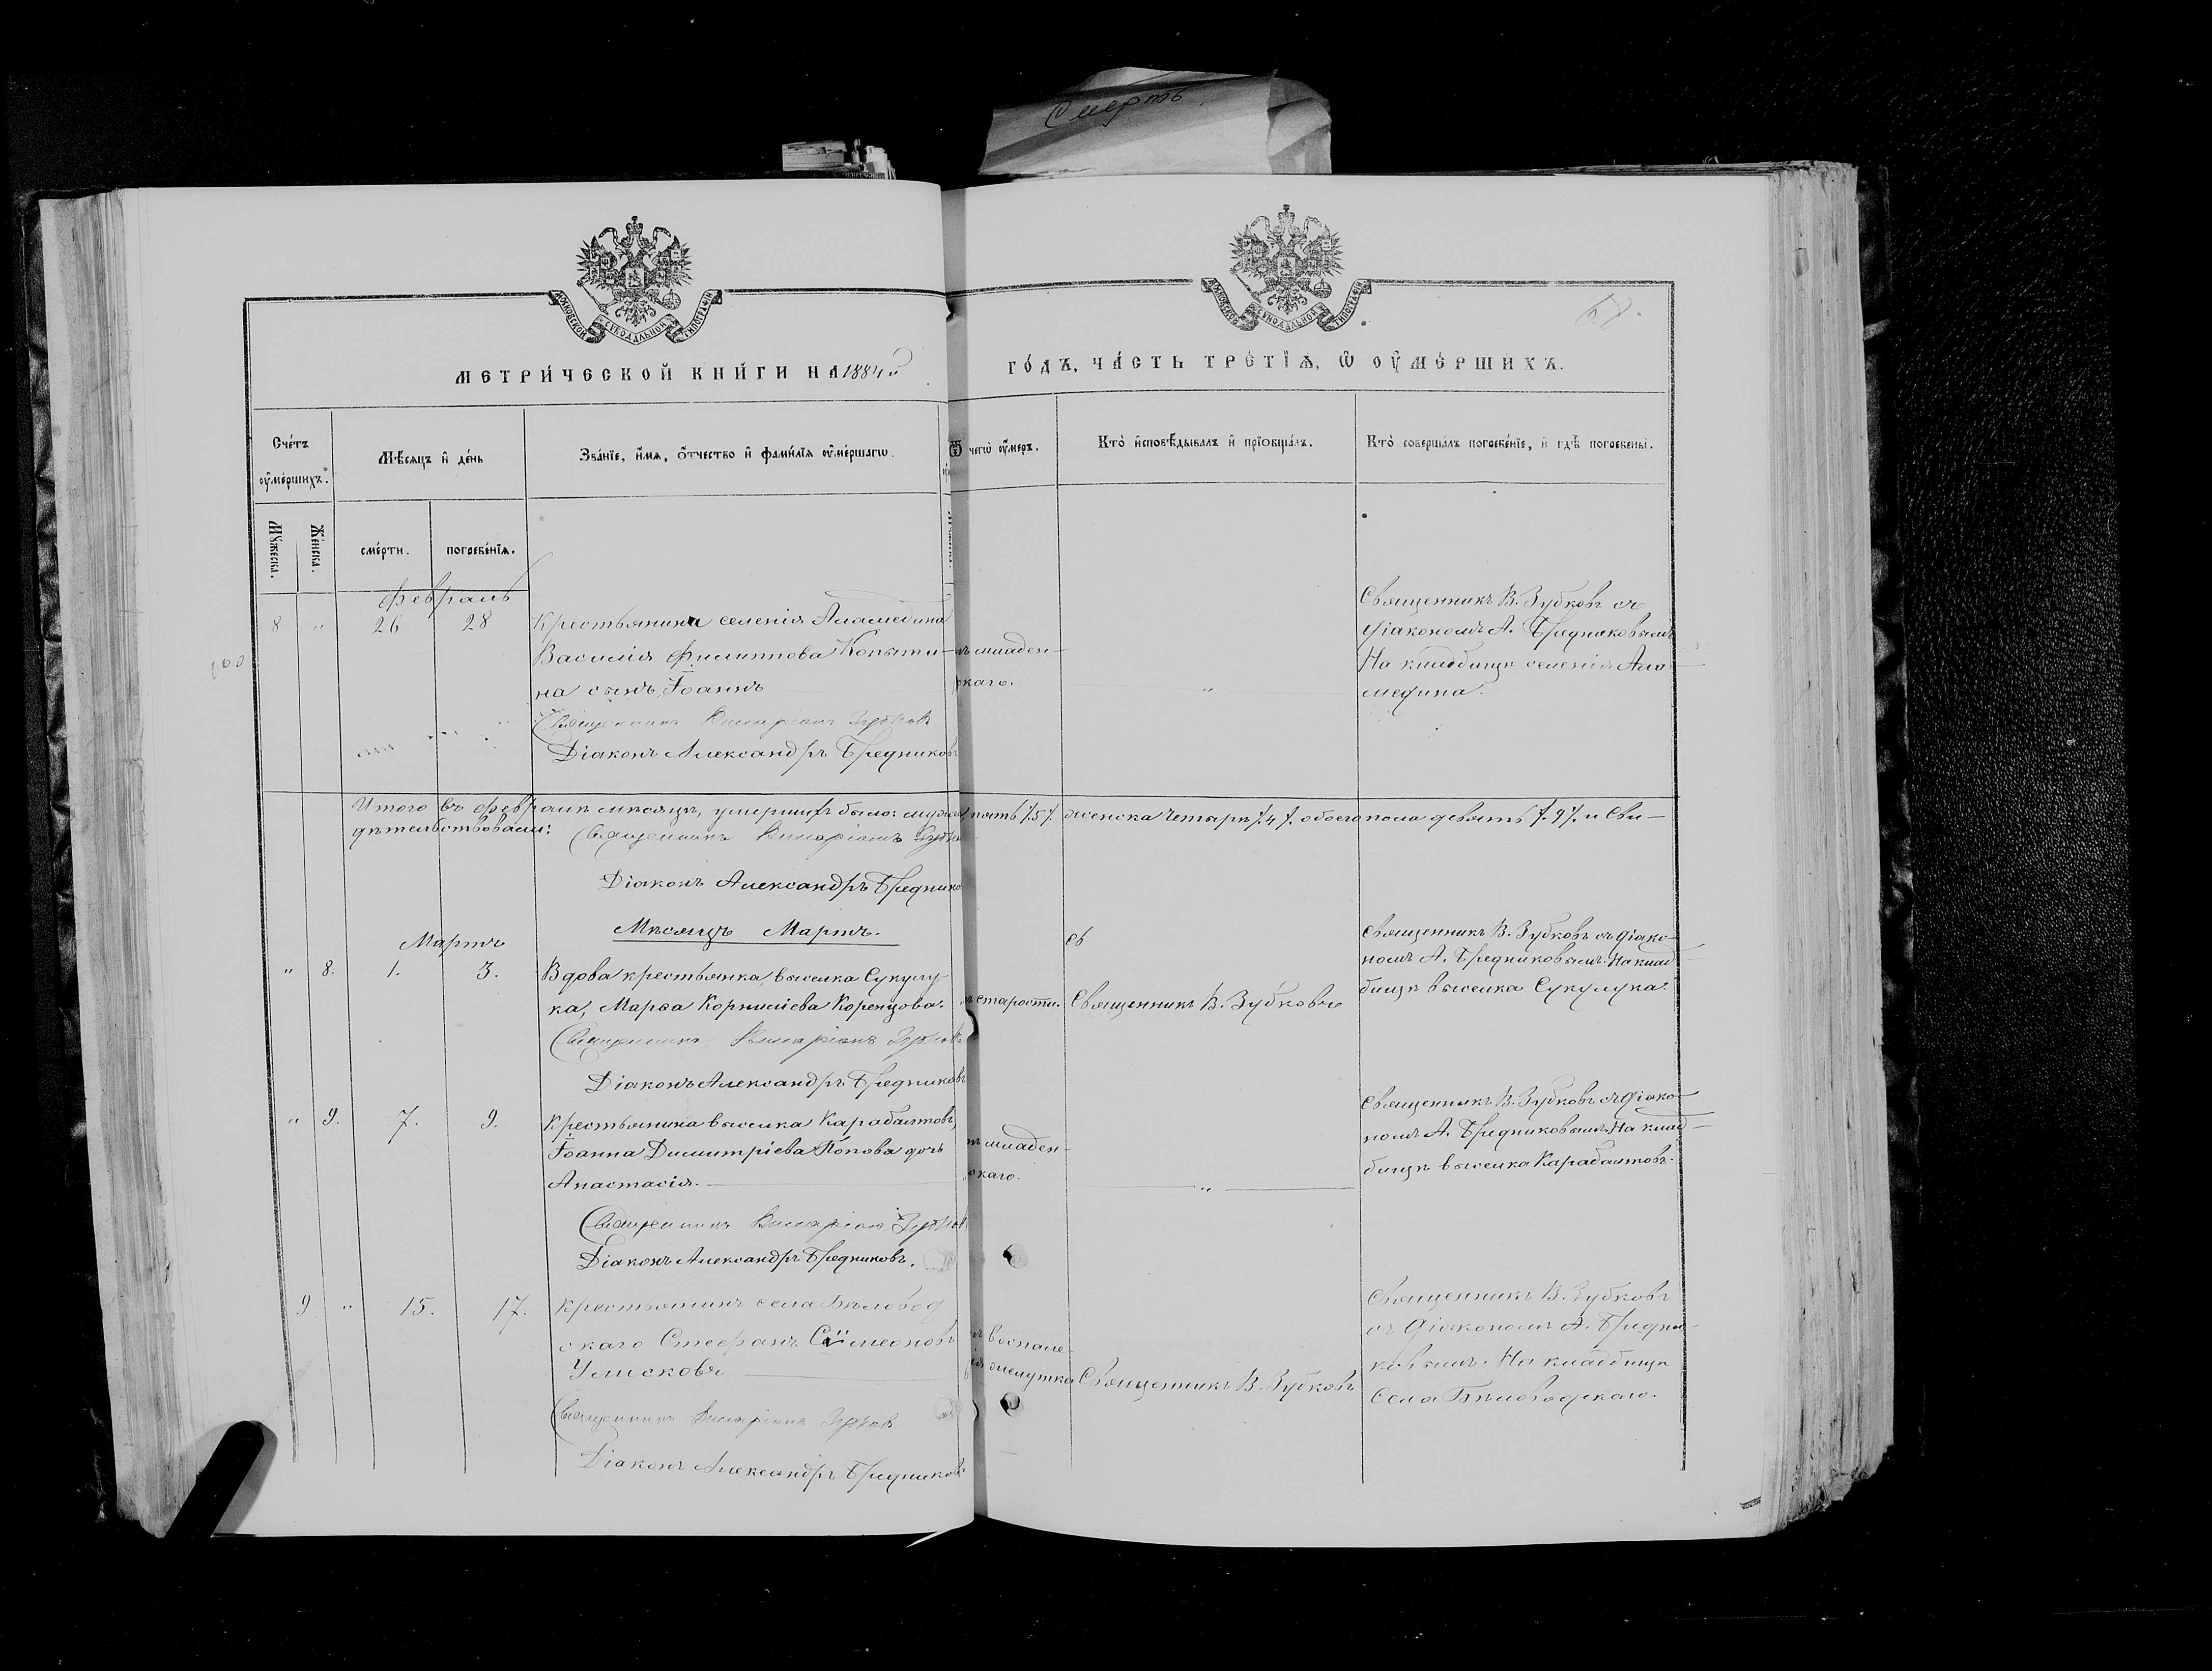 Смерть.
МОСКОВСКОЙ СѴНОДАЛЬНОЙ ТИПОГРАФІИ
МОСКОВСКОЙ СѴНОДАЛЬНОЙ ТИПОГРАФІИ
МЕТРИ́ЧЕСКОЙ КНИ́ГИ НА 1884 й
ГО́ДЪ, ЧА́СТЬ ТРЕ́ТІѦ, Ѽ ОУ҆МЕ́РШИХЪ.
Сче́тъ оу҆ме́ршихъ.
Мѣ́сяцъ и҆ де́нь
Зва́нїе, и҆́мя, ѻ҆́тчество и҆ фами́лїя оу҆ме́ршагѡ.
Ѿ чегѡ̀ оу҆́меръ.
Кто̀ и҆сповѣ́дывалъ и҆ прїобща́лъ.
Кто̀ соверша́лъ погребе́нїе, и҆ гдѣ̀ погребены̀.
Мꙋ́жеска.
Же́нска.
сме́рти.
погребе́нїя.
Февраль
8 " 26 28
Крестьянина селенія Аламедина
Василія Филиппова Копыти-
на сынъ Іоаннъ
Священникъ Виларіанъ Зубковъ
Діаконъ Александръ Бредниковъ
младен-
скаго.
"
Священникъ В. Зубковъ съ
діакономъ А. Бредниковымъ
На кладбищѣ селенія Ала-
медина.
Итого въ Февралѣ мѣсяцѣ, умершихъ было: муж. пять /.5/. женска четыре /.4/. обоего пола девять /.9/. и Сви-
дѣтельствовали:
Священникъ Виларіанъ
Діаконъ Александръ
Мѣсяцъ Мартъ.
Мартъ
" 8. 1. 3.
Вдова крестьянка, выселка Сукулу-
ка, Марѳа Корнилiева Коренцова.
Священникъ Виларіанъ Зубковъ
Діаконъ Александръ Бредниковъ
старости.
Священникъ В. Зубковъ
Священникъ В. Зубковъ съ діако-
номъ А. Бредниковымъ. На клад-
бищѣ выселка Сукулука.
" 9. 7. 9.
Крестьянина выселка Карабалтовъ,
Іоанна Димитріева Попова дочь
Анастасія.
Священникъ Виларіанъ Зубковъ
Діаконъ Александръ Бредниковъ.
младен-
скаго.
"
Священникъ В. Зубковъ съ діако-
номъ А. Бредниковымъ. На клад-
бищѣ выселка Карабалтовъ.
9 " 15. 17.
Крестьянинъ села Бѣловод
скаго Стефанъ Симеоновъ
Священникъ Виларіанъ Зубковъ
Діаконъ Александръ Бредниковъ
воспале-
желудка
Священникъ В. Зубковъ
Священникъ В. Зубковъ
съ діакономъ А. Бредни-
ковымъ. На кладбищѣ
Села Бѣловодскаго.